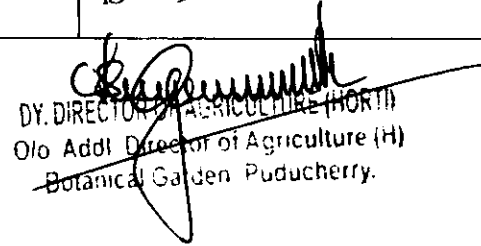 DY. DIRECTOR OF AGRICULTURE (HORTI)
O/o Addl Director of Agriculture (H)
Botanical Garden Puducherry.